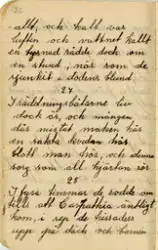 allt, och kall var
luften och vattnet kallt
en hyrned rädde dock om
en stund, när som de
sjunkit i dödens blund.
27
I räddningsbåtarne liv
dock är, och mången
där mistat maken kär
en sakta kvidan hörs
blott man hör, och denna
sorg som all hjärtan rör
28
I fyra timmar de rodde om
tills att Carpathia äntligt
kom, i rep de hissades
upp på däck och barnen